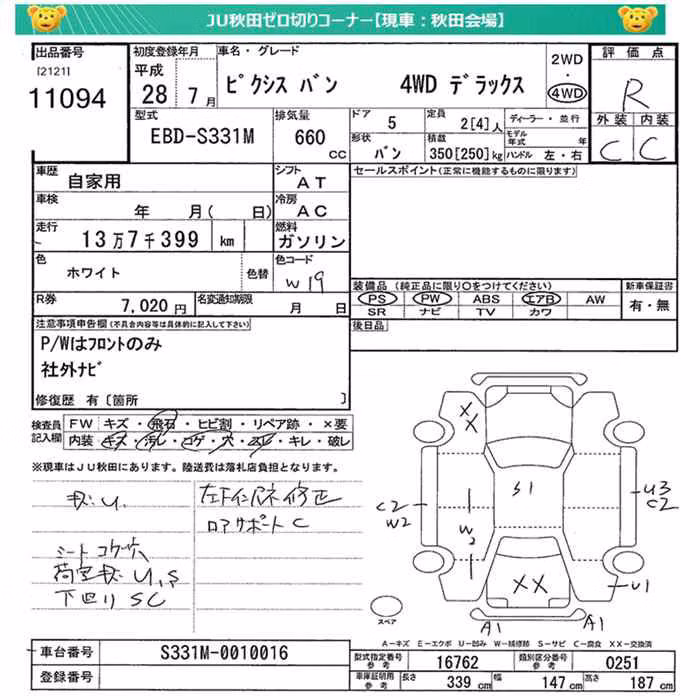 JU秋田ゼロ切りコーナー【現車：秋田会場】
出品番号 初度登録年月 車名・グレード 2WD 評価点
[2121] 平成 ・
11094 28年 7月 ピクシス バン 4WD デラックス 4WD R
型式 排気量 ドア 5 定員 2[4]人 ディーラー・並行 外装 内装
EBD-S331M 660 CC 形状 バン 積載 350[250]kg モデル年式 年 C C
ハンドル 左・右
車歴 自家用 シフト AT セールスポイント(正常に機能するものに限ります)
車検 年 月( 日) 冷房 AC
走行 13万7千399 km 燃料 ガソリン
色 ホワイト 色替 色コード W19 装備品 (純正品に限り○をつけてください) 新車保証書
PS PW ABS エアB AW 有・無
R券 7,020円 名変通知期限 月 日 SR ナビ TV カワ
注意事項申告欄(不具合内容等は具体的に記入して下さい) 後日品
P/Wはフロントのみ
社外ナビ
修復歴 有〔箇所 〕
検査員記入欄 FW キズ・飛石・ヒビ割・リペア跡・×要
内装 キズ・汚レ・コゲ・穴・スレ・キレ・破レ
※現車はJU秋田にあります。陸送費は落札店負担となります。
XX
S1
U3
C2
C2
W2
W2
左Fインパネ修正
ロアサポートC
シート コゲ穴
U,S
下回り SC
XX
U1
A1 A1
スペア
A-キズ E-エクボ U-凹み W-補修跡 S-サビ C-腐食 XX-交換済
車台番号 S331M-0010016 型式指定番号 参考 16762 類別区分番号 参考 0251
登録番号 車庫証明用 参考 長さ 339 cm 幅 147 cm 高さ 187 cm